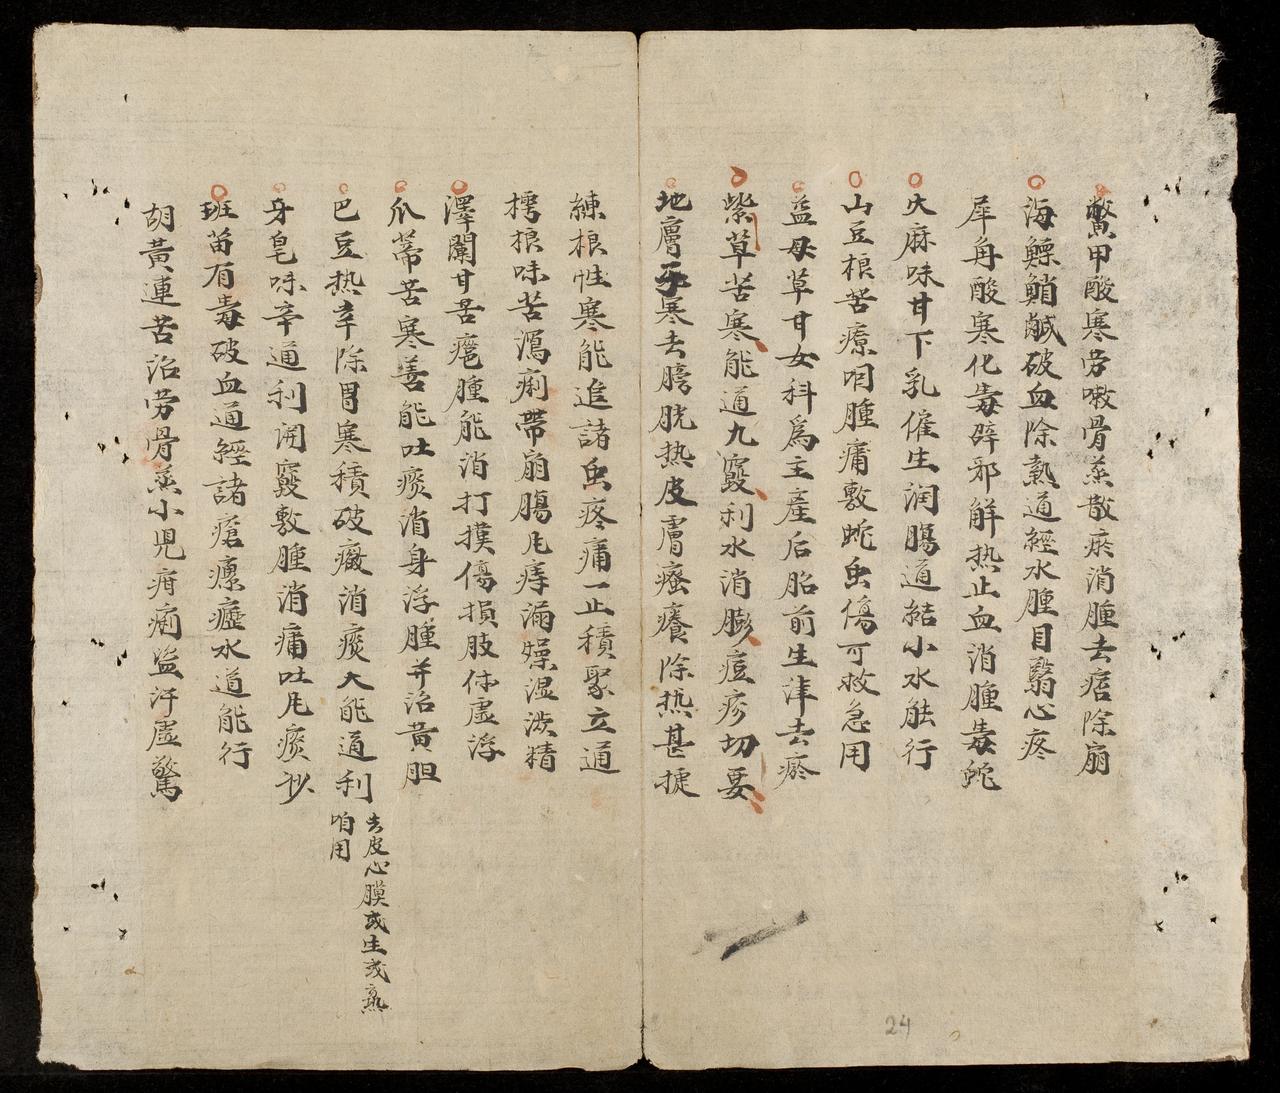 鱉甲酸寒劳嗽骨蒸散瘀消腫去痞除崩
海鰾鮹鹹破血除熱通經水腫目翳心疼
犀角酸寒化毒辟邪解热止血消腫毒蛇
火麻味甘下乳催生润腸通結小水能行
山豆根苦療咽腫痛敷蛇虫傷可救急用
益母草甘女科為主產后胎前生津去瘀
紫草苦寒能通九竅利水消膨痘疹切要
地膚子寒去膀胱热皮膚瘙癢除热甚捷
練根性寒能追諸虫疼痛一止積聚立通
樗根味苦瀉痢帶崩腸風痔漏燥湿澁精
澤蘭甘苦癰腫能消打撲傷損肢体虛浮
爪蒂苦寒善能吐痰消身浮腫并治黄胆
巴豆热辛除胃寒積破癥消痰大能通利
去皮心膜或生或熟
咱用
牙皂味辛通利開竅敷腫消痛吐风痰妙
班苗有毒破血通經諸瘡瘰癧水道能行
胡黃連苦治劳骨蒸小児疳痢盜汗虛驚
24